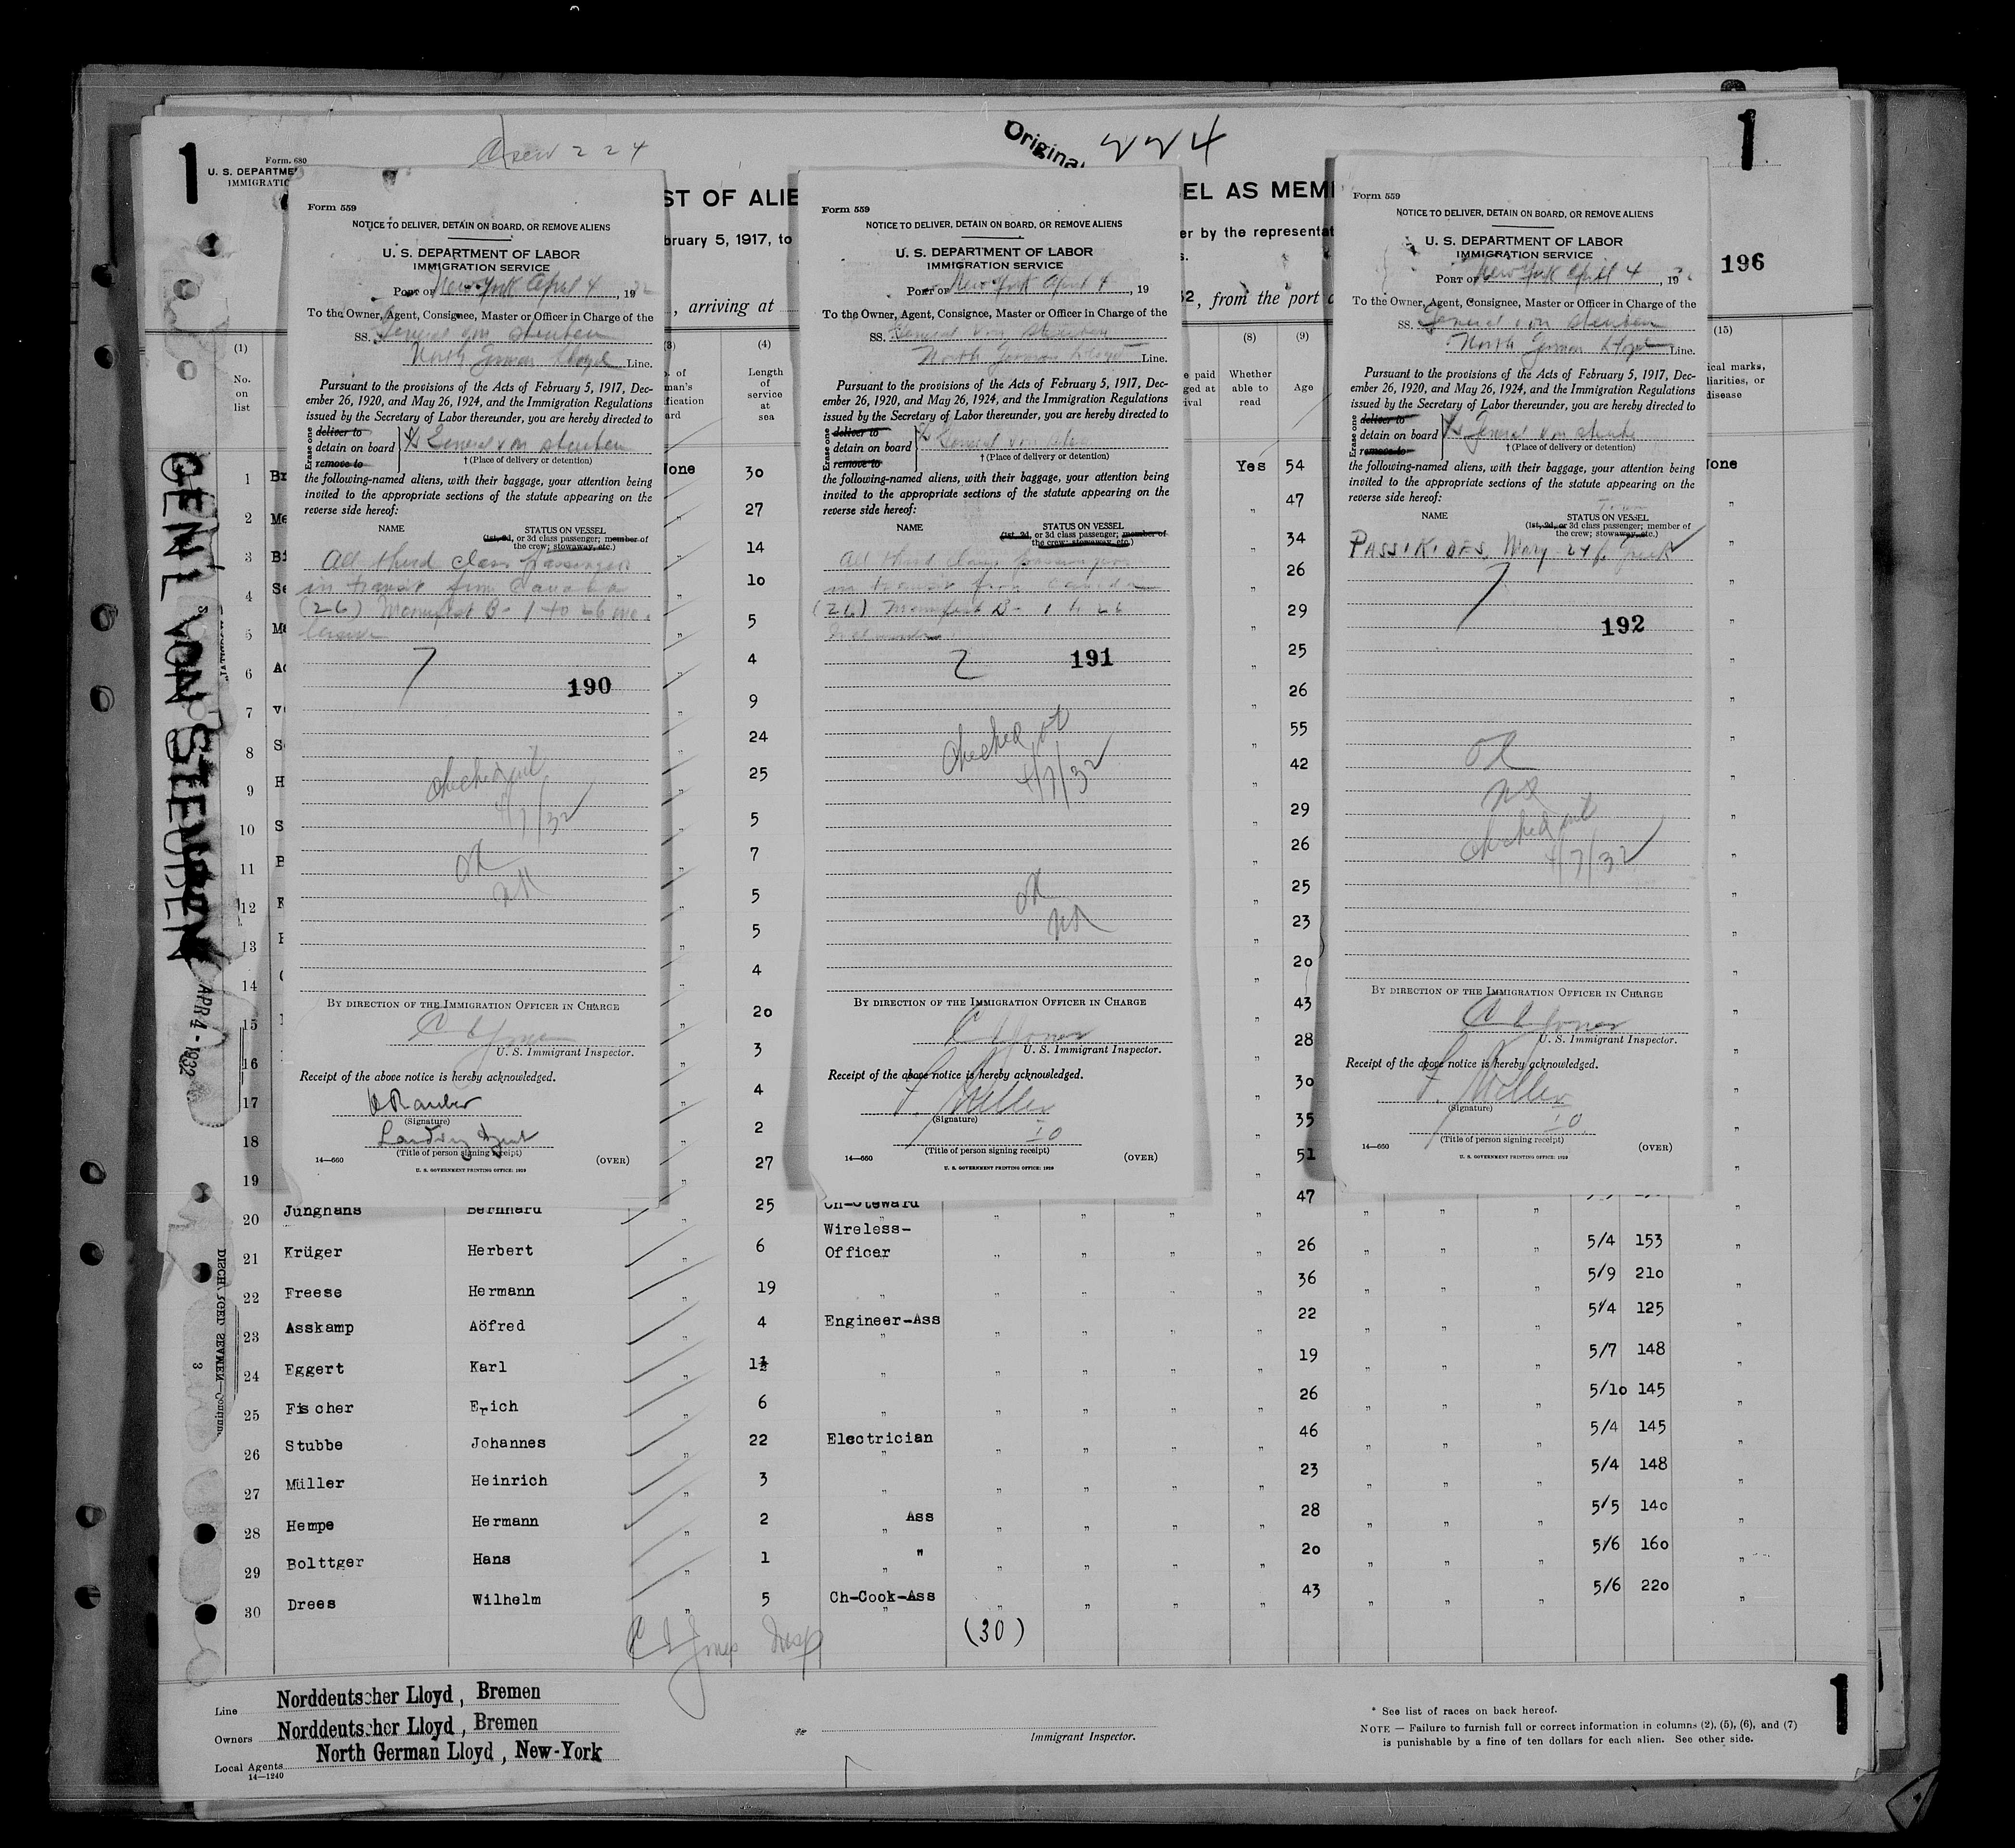 1
Form. 680
U. S. DEPARTME
IMMIGRATIC
Crew 224
Original
224
1
196
ST OF ALIE
EL AS MEM
bruary 5, 1917, to
er by the representat
s.
, arriving at
32, from the port o
GEN'L VON STEUBEN
APR 4 - 1932
DISCHARGED SEAMEN—Continu
3
Form 559
NOTICE TO DELIVER, DETAIN ON BOARD, OR REMOVE ALIENS
U. S. DEPARTMENT OF LABOR
IMMIGRATION SERVICE
PORT OF New York April 4, 1932
To the Owner, Agent, Consignee, Master or Officer in Charge of the
SS. General von Steuben
North German Lloyd Line.
Pursuant to the provisions of the Acts of February 5, 1917, Dec-
ember 26, 1920, and May 26, 1924, and the Immigration Regulations
issued by the Secretary of Labor thereunder, you are hereby directed to
Erase one
deliver to
detain on board
remove to
General von Steuben
† (Place of delivery or detention)
the following-named aliens, with their baggage, your attention being
invited to the appropriate sections of the statute appearing on the
reverse side hereof:
NAME
STATUS ON VESSEL
(1st, 2d, or 3d class passenger; member of
the crew; stowaway, etc.)
All third class passengers
in transit from Canada
(26) Manifest B- 1 to 26
7
190
Checked out
4/7/32
OK
BY DIRECTION OF THE IMMIGRATION OFFICER IN CHARGE
C L Jones
U. S. Immigrant Inspector.
Receipt of the above notice is hereby acknowledged.
(Signature)
Landing Agent
(Title of person signing receipt)
14—660
(OVER)
U. S. GOVERNMENT PRINTING OFFICE: 1929
Form 559
NOTICE TO DELIVER, DETAIN ON BOARD, OR REMOVE ALIENS
U. S. DEPARTMENT OF LABOR
IMMIGRATION SERVICE
PORT OF New York April 4, 19
To the Owner, Agent, Consignee, Master or Officer in Charge of the
SS. General von Steuben
North German Lloyd Line.
Pursuant to the provisions of the Acts of February 5, 1917, Dec-
ember 26, 1920, and May 26, 1924, and the Immigration Regulations
issued by the Secretary of Labor thereunder, you are hereby directed to
Erase one
deliver to
detain on board
remove to
General von
† (Place of delivery or detention)
the following-named aliens, with their baggage, your attention being
invited to the appropriate sections of the statute appearing on the
reverse side hereof:
NAME
STATUS ON VESSEL
(1st, 2d, or 3d class passenger; member of
the crew; stowaway, etc.)
All third class passengers
in transit from Canada
(26) Manifest B- 1 to 26
2
191
Checked out
4/7/32
OK
BY DIRECTION OF THE IMMIGRATION OFFICER IN CHARGE
C L Jones
U. S. Immigrant Inspector.
Receipt of the above notice is hereby acknowledged.
(Signature)
IO
(Title of person signing receipt)
14—660
(OVER)
U. S. GOVERNMENT PRINTING OFFICE: 1929
Form 559
NOTICE TO DELIVER, DETAIN ON BOARD, OR REMOVE ALIENS
U. S. DEPARTMENT OF LABOR
IMMIGRATION SERVICE
PORT OF New York April 4, 193
To the Owner, Agent, Consignee, Master or Officer in Charge of the
SS. General von Steuben
North German Lloyd Line.
Pursuant to the provisions of the Acts of February 5, 1917, Dec-
ember 26, 1920, and May 26, 1924, and the Immigration Regulations
issued by the Secretary of Labor thereunder, you are hereby directed to
Erase one
deliver to
detain on board
remove to
General von
† (Place of delivery or detention)
the following-named aliens, with their baggage, your attention being
invited to the appropriate sections of the statute appearing on the
reverse side hereof:
NAME
STATUS ON VESSEL
(1st, 2d, or 3d class passenger; member of
the crew; stowaway, etc.)
PASSIKIDES, Mary - 24 f. Greek
7
192
OK
Checked out
4/7/32
BY DIRECTION OF THE IMMIGRATION OFFICER IN CHARGE
C L Jones
U. S. Immigrant Inspector.
Receipt of the above notice is hereby acknowledged.
(Signature)
IO
(Title of person signing receipt)
14—660
(OVER)
U. S. GOVERNMENT PRINTING OFFICE: 1929
(1) No. on list
(3)
(4) Length of service at sea
(8) Whether able to read
(9) Age
(15)
ical marks,
liarities, or
disease
1 Br one 30 Yes 54 None
2 Me " 27 " 47 "
3 Bi " 14 " 34 "
4 Se " 10 " 26 "
5 Me " 5 " 29 "
6 Ac " 4 " 25 "
7 v " 9 " 26 "
8 S " 24 " 55 "
9 H " 25 " 42 "
10 S " 5 " 29 "
11 " 7 " 26 "
12 " 5 " 25 "
13 " 5 " 23 "
14 " 4 " 20 "
15 " 20 " 43 "
16 " 3 " 28 "
17 " 4 " 30 "
18 " 2 " 35 "
19 " 27 " 51 "
20 Junghans Bernhard " 25 Ch-Steward " " " " 47 " " " "
21 Krüger Herbert " 6 Wireless-Officer " " " " 26 " " " 5/4 153 "
22 Freese Hermann " 19 " " " " " 36 " " " 5/9 210 "
23 Asskamp Aöfred " 4 Engineer-Ass " " " " 22 " " " 5/4 125 "
24 Eggert Karl " 1½ " " " " " 19 " " " 5/7 148 "
25 Fischer Erich " 6 " " " " " 26 " " " 5/10 145 "
26 Stubbe Johannes " 22 Electrician " " " " 46 " " " 5/4 145 "
27 Müller Heinrich " 3 " " " " " 23 " " " 5/4 148 "
28 Hempe Hermann " 2 " Ass " " " " 28 " " " 5/5 140 "
29 Bolttger Hans " 1 " " " " " " 20 " " " 5/6 160 "
30 Drees Wilhelm " 5 Ch-Cook-Ass " " " " 43 " " " 5/6 220 "
C L Jones Insp
(30)
Line Norddeutscher Lloyd, Bremen
Owners Norddeutscher Lloyd, Bremen
Local Agents North German Lloyd, New-York
14—1240
Immigrant Inspector.
* See list of races on back hereof.
NOTE — Failure to furnish full or correct information in columns (2), (5), (6), and (7)
is punishable by a fine of ten dollars for each alien. See other side.
1